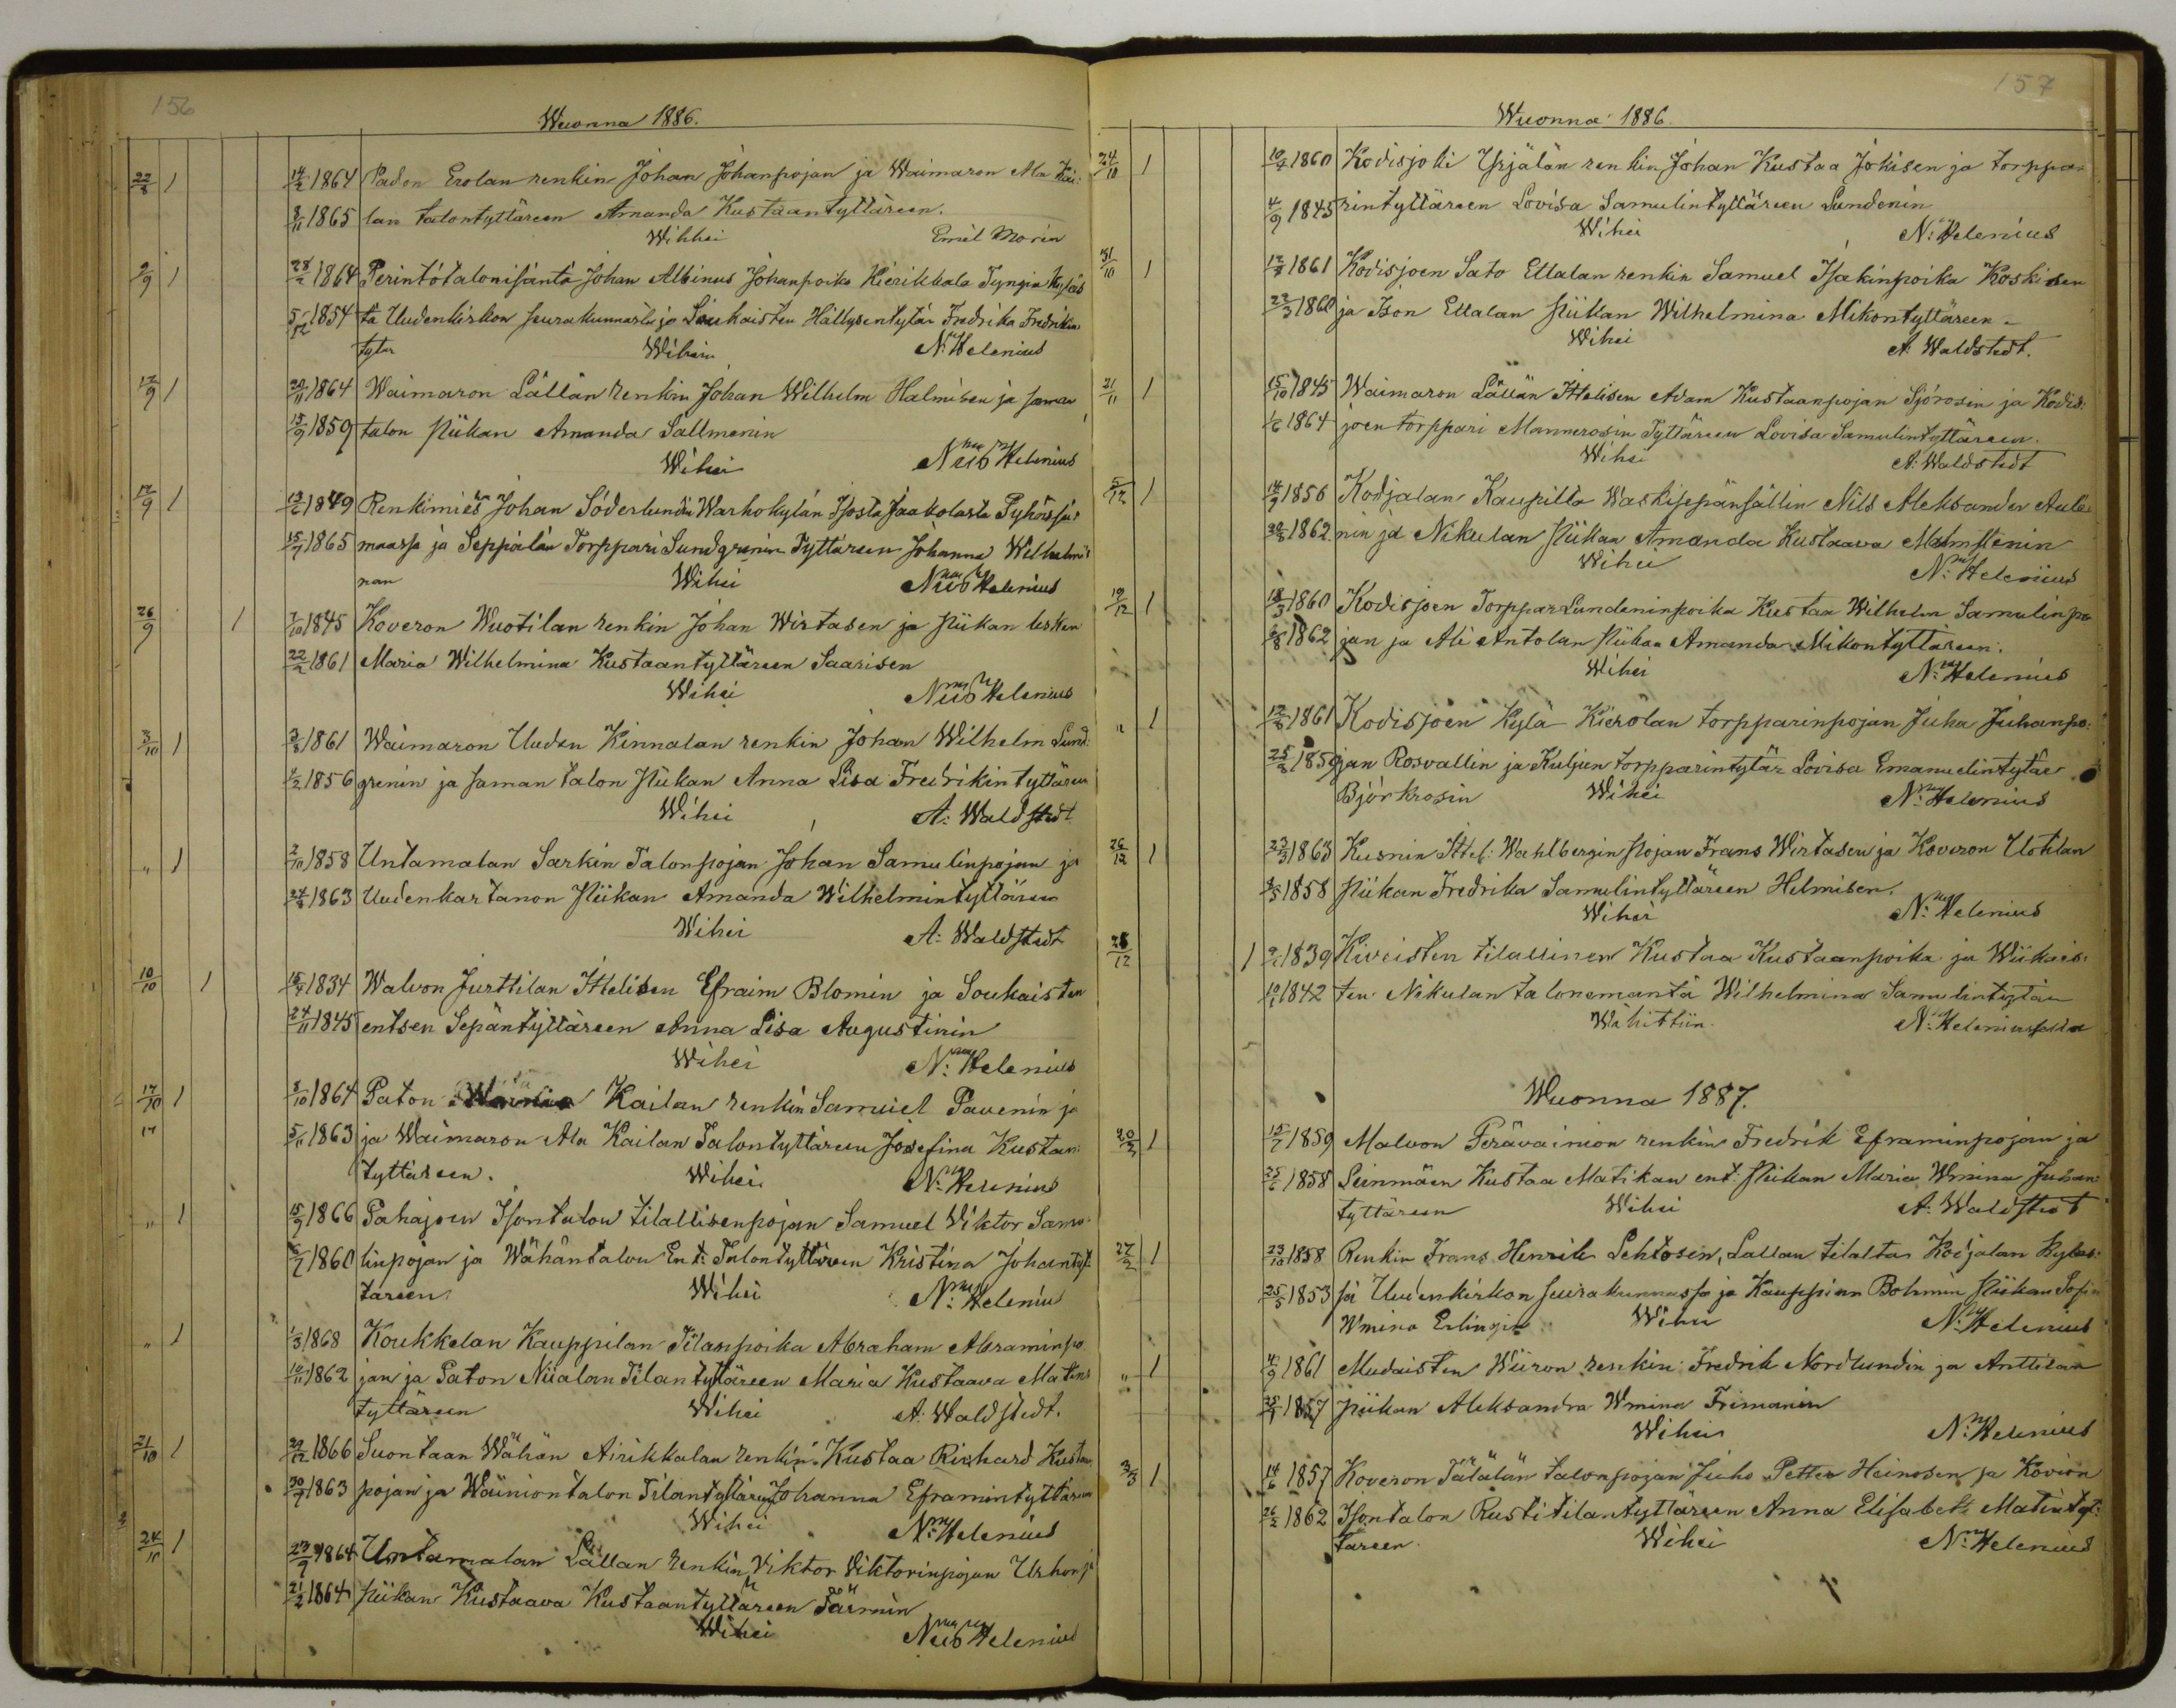 156
Wuonna 1886.
22/8 1 14/2 1864 Padon Erolan renkin Johan Johanpojan ja Waimaron Ala Kai:
8/11 1865 lan talontyttäreen Amanda Kustaantyttäreen.
Wihkei Emil Morin
9/9 1 28/2 1864 Perintötalonisäntä Johan Albinus Johanpoika Kierikkala Tyngin kyläs
5/12 1854 tä Uudenkirkon seurakunnasta ja Soukaisten Hällysentytär Fredrika Fredrikin
tytär Wihein N: Helenius
12/9 1 20/11 1864 Waimaron Lällän renkin Johan Wilhelm Halmisen ja saman
15/9 1859 talon piikan Amanda Sallmenin
Wihei Nils Helenius
17/9 1 1849 Renkimies Johan Söderlundin Warhokylän Isosta Jaakolasta Pyhäsjär
15/7 1865 maassa ja Seppälän Torppari Sundgrenin Tyttäreen Johanna Wilhelmi
nan Wihei Nils Helenius
26/9 1 7/10 1845 Koveron Wuotilan renkin Johan Wirtasen ja piikan lesken
22/2 1861 Maria Wilhelmina Kustaantyttäreen Saarisen
Wihei Nils Helenius
3/10 1 3/8 1861 Waimaron Uuden Kinnalan renkin Johan Wilhelm Sund:
1856 grenin ja saman talon piikan Anna Lisa Fredrikintyttäreen
Wihei A: Waldstedt
" 1 2/10 1858 Untamalan Sarkin Talonpojan Johan Samulinpojan ja
24/8 1863 Uudenkartanon piikan Amanda Wilhelmintyttäreen
Wihei A: Waldstedt
10/10 1 1834 Walvon Jurttilan Ittelisen Efraim Blomin ja Soukaisten
24/11 1845 entsen Sepäntyttäreen Anna Lisa Augustinin
Wihei N: Helenius
17/10 1 8/10 1864 Paton Kailan renkin Samuel Pavenin ja
17 5/11 1863 ja Waimaron Ala Kailan Talontyttäreen Josefina Kustan:
tyttäreen. Wihei N: Helenius
" 1 15/9 1866 Pahajoen Isontalon tilallisenpojan Samuel Viktor Samu
1860 linpojan ja Wähäntalon Ent: Talontyttäreen Kristina Johantyt
täreen Wihei N: Helenius
" 1 1/3 1868 Koukkelan Kauppilan Tilanpoika Abraham Abraminpo
10/11 1862 jan ja Paton Niialan Tilantyttäreen Maria Kustaava Matin:
tyttäreen Wihei A. Waldstedt.
21/10 1 29/12 1866 Suontaan Wähän Airikkalan renkin Kustaa Richard Kustaa
30/7 1863 pojan ja Wäiniontalon Tilantyttären Johanna Eframintyttäreen
Wihei N: Helenius
24/10 1 23/7 1864 Untamalan Lällan renkin Viktor Viktorinpojan Urhon ja
21/2 1864 piikan Kustaava Kustaantyttäreen Färmin
Wihei Nils Helenius
157
Wuonna 1886.
24/10 1 1860 Kodisjoki Yrjälän renkin Johan Kustaa Jokisen ja torppa
4/9 1845 rintyttäreen Lovisa Samulintyttäreen Lundenin
Wihei N: Helenius
31/10 1 1861 Kodisjoen Sato Ettalan renkin Samuel Isakinpoika Koskisen
22/3 1860 ja Ison Ettalan piikan Wilhelmina Mikontyttäreen
Wihei A: Waldstedt.
21/11 1 15/10 1845 Waimaron Lällän Ittelisen Adam Kustaanpojan Sjörosin ja Kodis:
1/6 1864 joen torppari Mannerosin Tyttäreen Lovisa Samulintyttäreen.
Wihei A: Waldstedt
5/12 1 14/9 1856 Kodjalan Kaupilla Waskisepänsällin Nils Aleksander Aule
30/8 1862 nin ja Nikulan piikan Amanda Kustaava Malmstenin
Wihei N: Helenius
19/12 1 18/3 1860 Kodisjoen Torppar Lundeninpoika Kustaa Wilhelm Samulinpo
1862 jan ja Ali Antolan piikan Amanda Mikontyttäreen.
Wihei N: Helenius
" 1 1861 Kodisjoen kylä Kierolan torpparinpojan Juha Juhanpo:
25/8 1859 jan Rosvallin ja Kuljun torpparintytär Lovisa Emanuelintytär
Björkrosin Wihei N: Helenius
26/12 1 23/3 1863 Kusnin Ittel: Wahlbergin pojan Frans Wirtasen ja Koveron Uotilan
1858 piikan Fredrika Samulintyttäreen Helmisen.
Wihei N: Helenius
28/12 1 1839 Kiveisten tilallinen Kustaa Kustaanpoika ja Wiikais:
1842 ten Nikulan talonemäntä Wilhelmina Samulintytär
Wihittiin. N: Helenius
Wuonna 1887.
20/2 1 15/7 1859 Malvon Perävainion renkin Fredrik Eframinpojan ja
25/6 1858 Leinmäen Kustaa Matikan ent. piikan Maria Wmina Juhan:
tyttäreen Wihei A: Waldstedt
27/2 1 23/10 1858 Renkin Frans Henrik Lehtosen, Lallan tilalta Koijalan kyläs:
25/5 1853 sä Uudenkirkon seurakunnassa ja Kauppian Bohmin piikan Sofia
Wmina Erlingin Wihei N: Helenius
" 1 4/9 1861 Mudaisten Wiiron renkin Fredrik Nordlundin ja Anttilan
1857 piikan Aleksandra Wmina Frimanin
Wihei N: Helenius
3/3 1 14/6 1857 Koveron Tälälän talonpojan Juho Petter Heinosen ja Kovion
26/2 1862 Isontalon Rustitilantyttäreen Anna Elisabet Matintyt:
täreen. Wihei N: Helenius